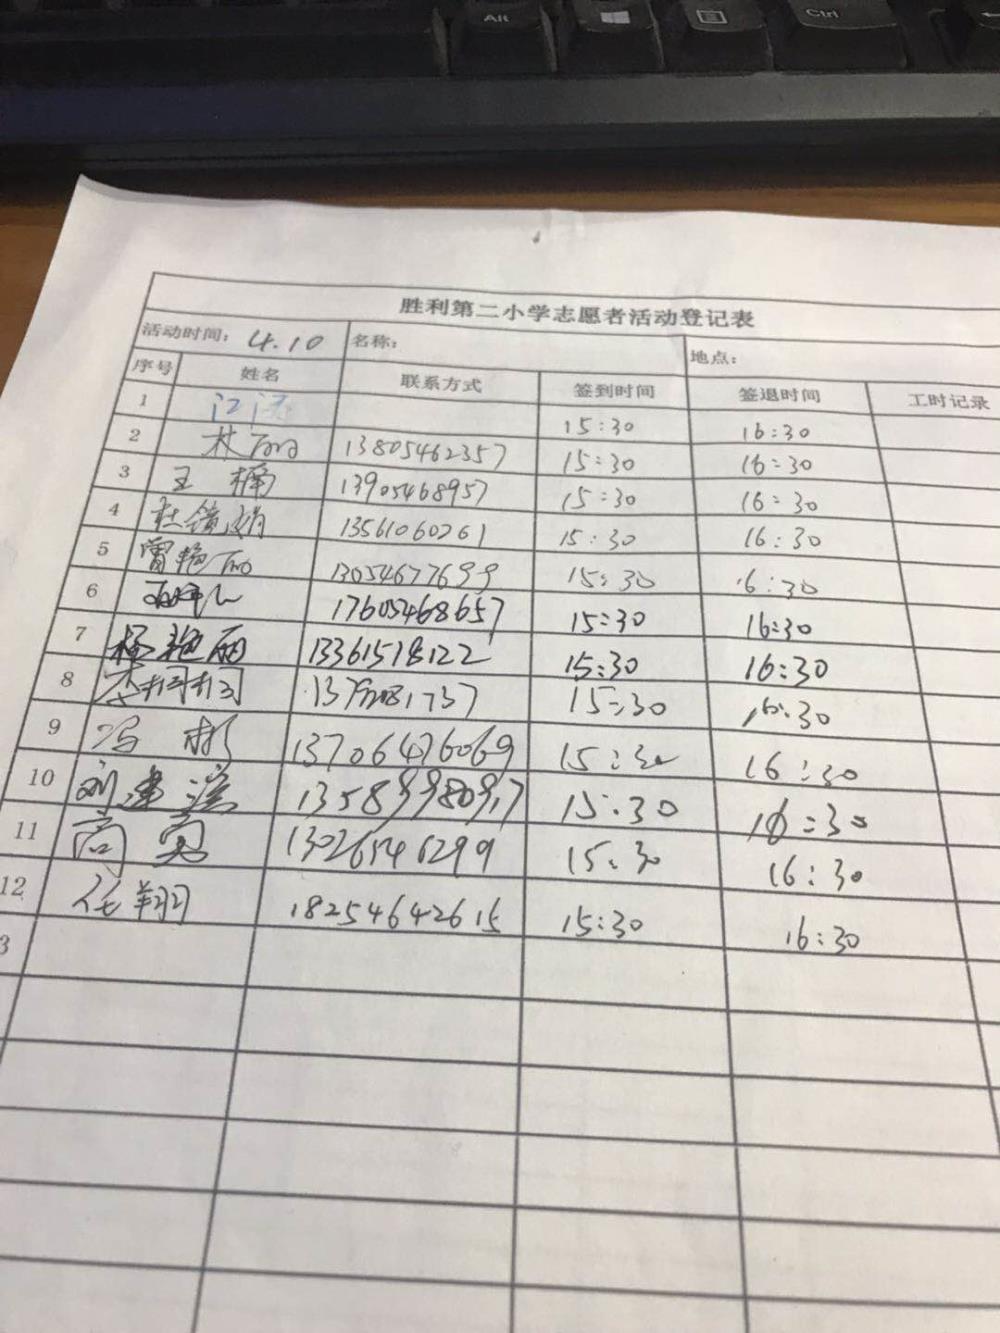 Alt
Ctrl
胜利第二小学志愿者活动登记表
活动时间: 4.10 名称: 地点:
序号 姓名 联系方式 签到时间 签退时间 工时记录
1 15:30 16:30
2 林丽 13805462357 15:30 16:30
3 王楠 13905468957 15:30 16:30
4 杜镜娟 13561060261 15:30 16:30
5 曾艳丽 13054677699 15:30 16:30
6 17605468657 15:30 16:30
7 杨艳丽 13361518122 15:30 16:30
8 李珂珂 15:30 16:30
9 冯彬 13706476069 15:30 16:30
10 刘建滨 13589980917 15:30 16:30
11 高勇 13026546299 15:30 16:30
12 任翔 18254642615 15:30 16:30
3